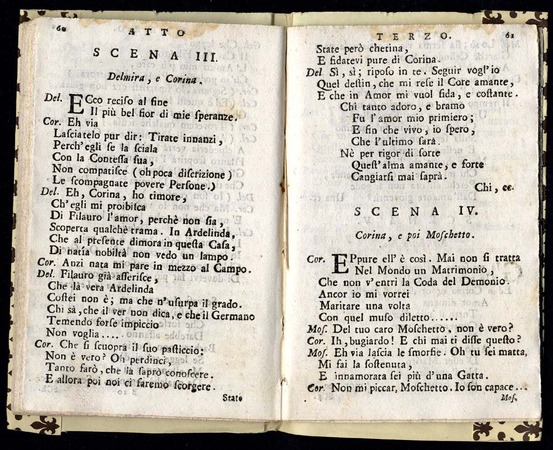 60 ATTO
SCENA III.
Delmira, e Corina.
Del. ECco reciso al fine
Il più bel fior di mie speranze.
Cor. Eh via
Lasciatelo pur dir: Tirate innanzi,
Perch'egli se la sciala
Con la Contessa sua,
Non compatisce (oh poca discrizione)
Le scompagnate povere Persone.)
Del. Eh, Corina, ho timore,
Ch'egli mi proibisca
Di Filauro l'amor, perchè non sia,
Scoperta qualchè trama. In Ardelinda,
Che al presente dimora in questa Casa,
Di natia nobiltà non vedo un lampo.
Cor. Anzi nata mi pare in mezzo al Campo.
Del. Filauro già asserisce,
Che la vera Ardelinda
Costei non è; ma che n'usurpa il grado.
Chi sà, che il ver non dica, e che il Germano
Temendo forse impiccio
Non voglia.....
Cor. Che si scuopra il suo pasticcio;
Non è vero? Oh perdinci,
Tanto farò, che la saprò conoscere.
E allora poi noi ci faremo scorgere.
State
TERZO. 61
State però chetina,
E fidatevi pure di Corina.
Del. Sì, sì; riposo in te. Seguir vogl'io
Quel destin, che mi rese il Core amante,
E che in Amor mi vuol fida, e costante.
Chi tanto adoro, e bramo
Fu l'amor mio primiero;
E fin che vivo, io spero,
Che l'ultimo sarà.
Nè per rigor di sorte
Quest'alma amante, e forte
Cangiarsi mai saprà.
Chi, ec.
SCENA IV.
Corina, e poi Moschetto.
Cor. EPpure ell' è così. Mai non si tratta
Nel Mondo un Matrimonio,
Che non v'entri la Coda del Demonio.
Ancor io mi vorrei
Maritare una volta
Con quel muso diletto......
Mos. Del tuo caro Moschetto, non è vero?
Cor. Ih, bugiardo! E chi mai ti disse questo?
Mos. Eh via lascia le smorfie. Oh tu sei matta,
Mi fai la sostenuta,
E innamorata sei più d'una Gatta.
Cor. Non mi piccar, Moschetto. Io son capace...
Mos.